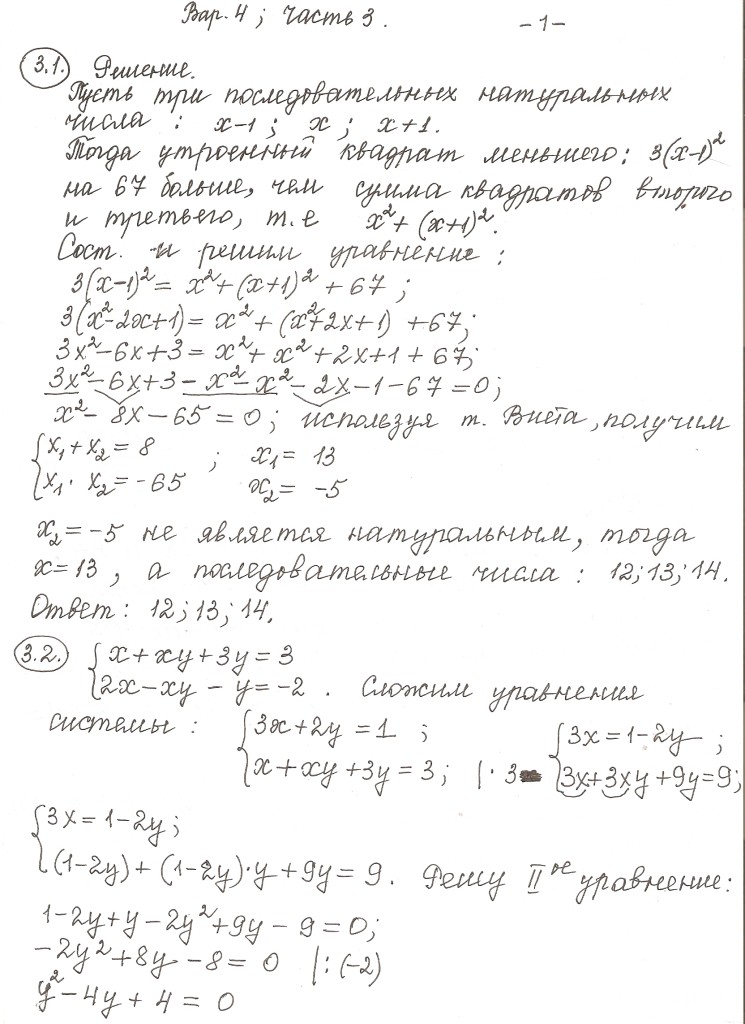 Вар. 4 ; Часть 3. -1-
3.1. Решение.
Пусть три последовательных натуральных
числа : x-1 ; x ; x+1.
Тогда утроенный квадрат меньшего: 3(x-1)²
на 67 больше, чем сумма квадратов второго
и третьего, т.е x² + (x+1)².
Сост. и решим уравнение :
3(x-1)² = x² + (x+1)² + 67 ;
3(x²-2x+1) = x² + (x²+2x+1) + 67;
3x²-6x+3 = x² + x² + 2x+1 + 67;
3x²-6x+3 - x² - x² - 2x - 1 - 67 = 0;
x² - 8x - 65 = 0 ; используя т. Виета, получим
{x₁ + x₂ = 8 ; x₁ = 13
{x₁ · x₂ = -65 x₂ = -5
x₂ = -5 не является натуральным, тогда
x = 13 , а последовательные числа : 12; 13; 14.
Ответ: 12; 13; 14.
3.2. {x + xy + 3y = 3
{2x - xy - y = -2 . Сложим уравнения
системы : {3x + 2y = 1 ; {3x = 1-2y ;
{x + xy + 3y = 3; |·3 {3x+3xy+9y=9;
{3x = 1-2y;
{(1-2y) + (1-2y)·y + 9y = 9. Решу IIое уравнение:
1-2y+y-2y²+9y-9=0;
-2y²+8y-8=0 |:(-2)
y²-4y+4=0